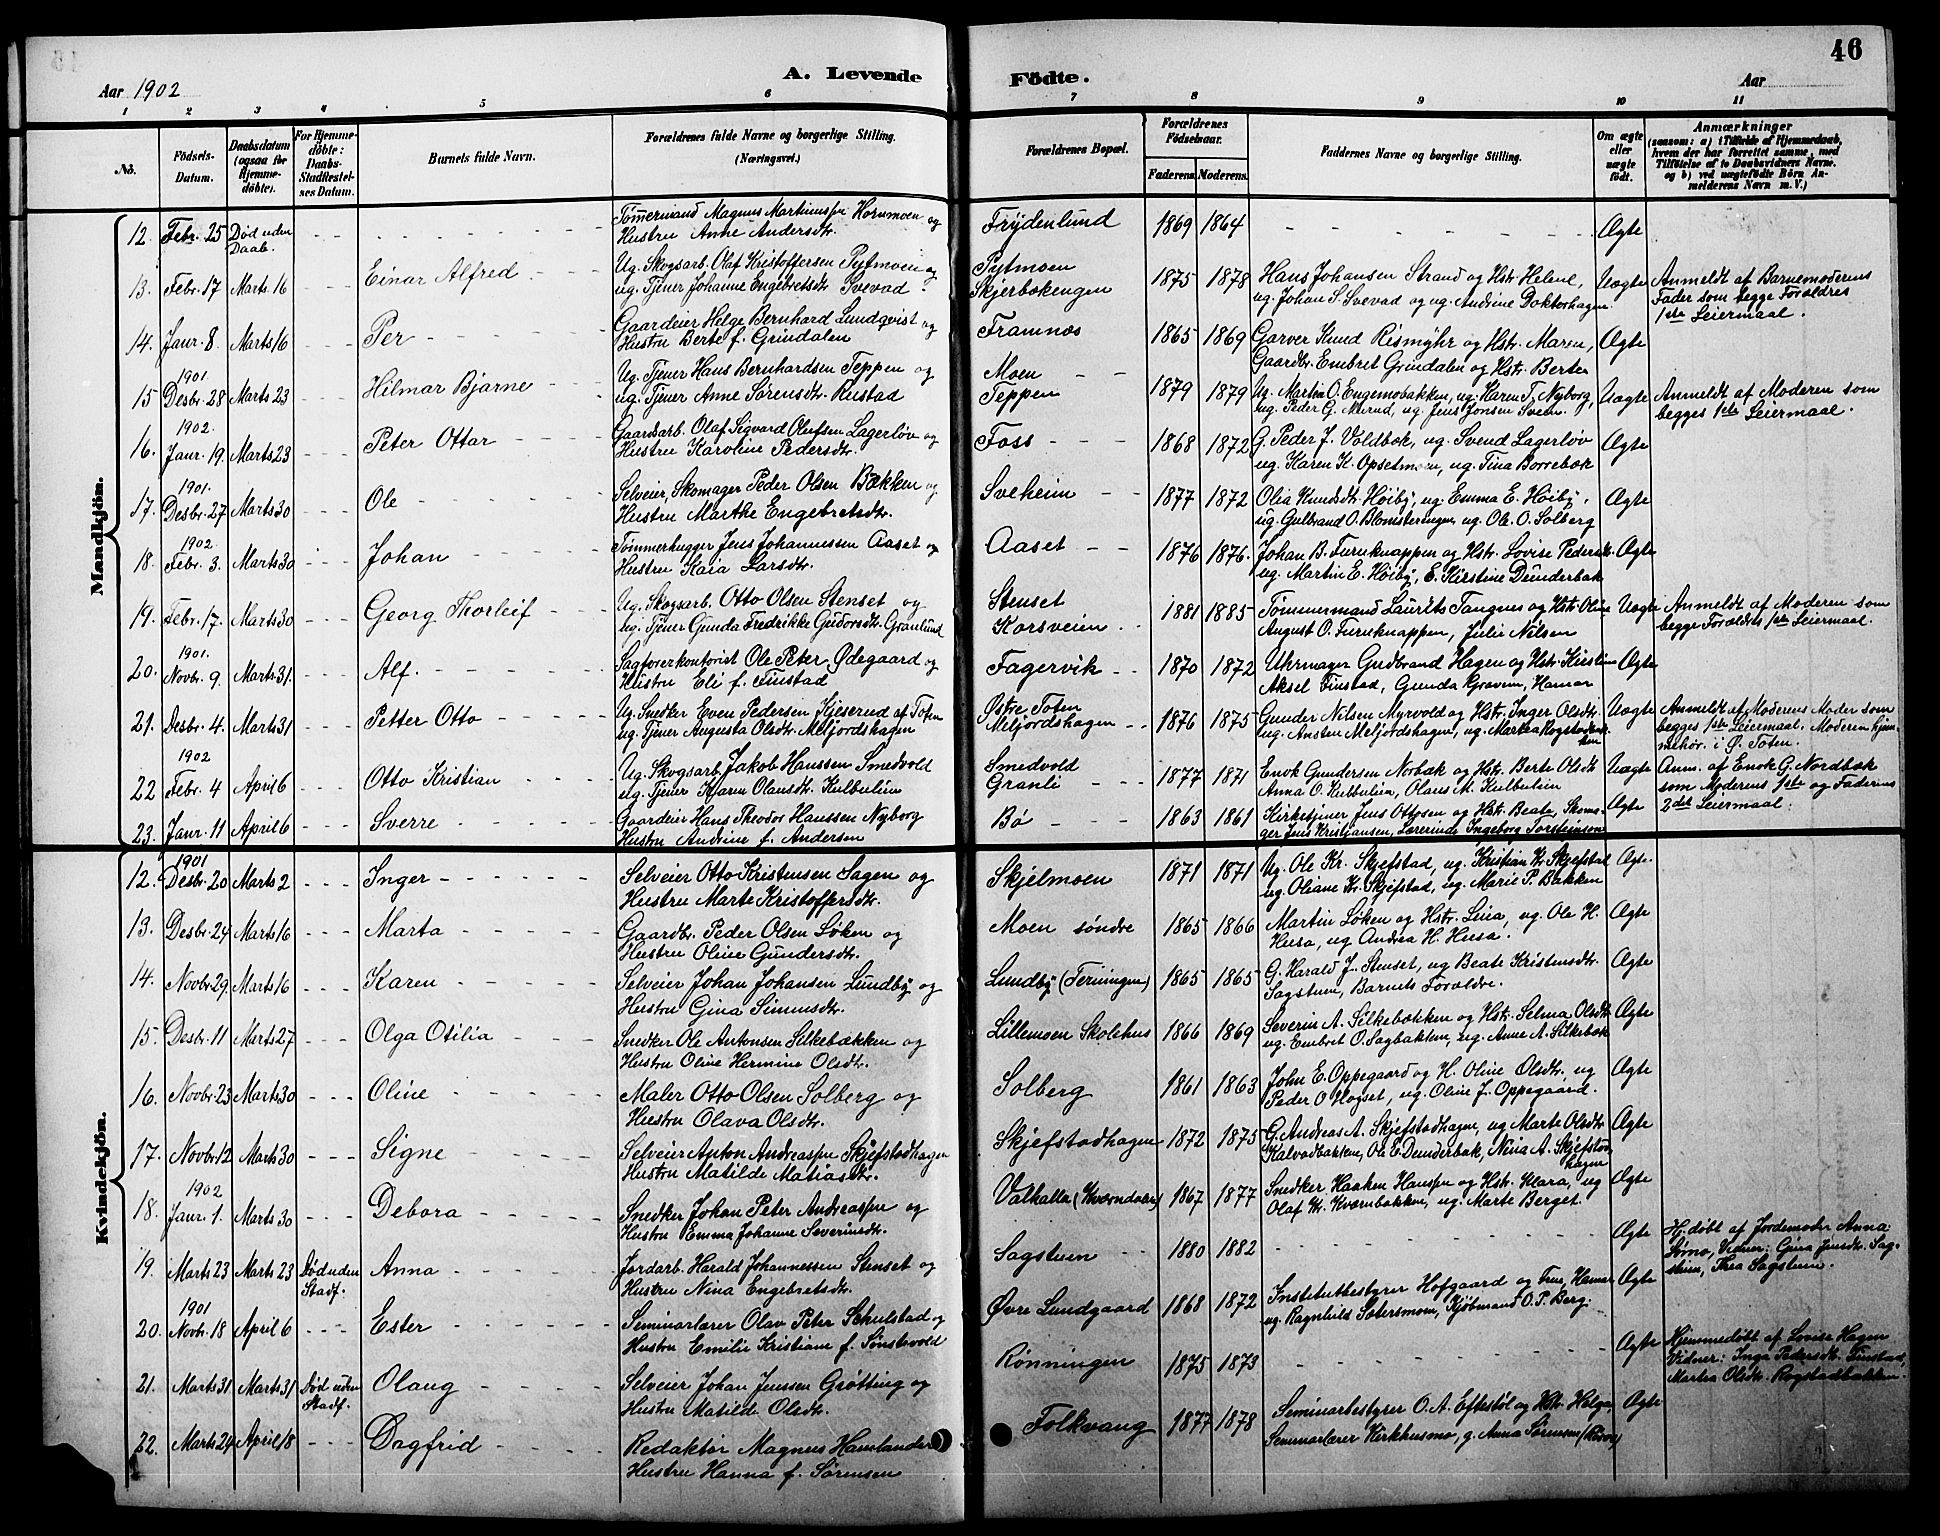 Aar 1902
A. Levende
Födte.
46
Aar
1 2 3 4 5 6 7 8 9 10 11
No.
Födsels-Datum.
Daabsdatum (ogsaa for Hjemmedöbte).
For Hjemmedöbte: Daabs-Stadfestelses Datum.
Barnets fulde Navn.
Forældrenes fulde Navne og borgerlige Stilling.
(Næringsvei.)
Forældrenes Bopæl.
Forældrenes Födselsaar.
Faderens. Moderens.
Faddernes Navne og borgerlige Stilling.
Om ægte eller uægte födt.
Anmærkninger
(saasom: a) i Tilfælde af Hjemmedaab, hvem der har forrettet samme, med Tilföielse af to Daabsvidners Navne. og b) ved uægtefödte Börn Anmelderens Navn m. V.)
Mandkjön.
12. Febr. 25 Død uden Daab. Tømermand Magnus Martinussen Hornmoen og Frydenlund 1869 1864 Ægte
Hustru Anne Andersdtr.
13. Febr. 17 Marts 16 Einar Alfred Ug. Skogsarb. Olaf Kristoffersen Pytmoen og Pytmoen 1875 1878 Hans Johansen Strand og Hstr. Helene, Uægte Anmeldt af Barnemoderens
ug. Tjener Johanne Engebretsdtr. Svevad Skjerbækengen ug. Johan S. Svevad og ug. Andrine Doktorhagen Fader som begge Forældres
1ste Leiermaal.
14. Janr. 8. Marts 16 Per Gaardeier Helge Bernhard Lundqvist og Framnæs 1865 1869 Garver Knud Rismyhr og Hstr. Maren, Ægte
Hustru Berte f. Grindalen Gaardbr. Embret Grindalen og Hstr. Berte
1901.
15 Desbr. 28 Marts 23 Hilmar Bjarne Ug. Tjener Hans Bernhardsen Teppen og Moen 1879 1879 Ug. Martin O. Engemobakken, ug. Karen T. Nyborg, Uægte Anmeldt af Moderen som
ug. Tjener Anne Sørensdtr. Rustad Teppen ug. Peder G. , ug. Jens Jonsen begges 1ste Leiermaal.
1902.
16. Janr. 19. Marts 23 Peter Ottar Gaardsarb. Olaf Sigvard Olufsen Lagerløv og Foss 1868 1872 G. Peder J. Voldbæk, ug. Svend Lagerløv Ægte
Hustru Karoline Pedersdtr. ug. Karen K. Opsetmoen, ug. Tina Borrebæk
1901.
17. Desbr. 27 Marts 30 Ole Selveier, Skomager Peder Olsen Bækken og Sveheim 1877 1872 Olia Knudsdtr. Høiby, ug. Emma E. Høiby, Ægte
Hustru Marthe Engebretsdtr. ug. Gulbrand O. , ug. Ole O. Solberg
1902
18. Febr. 3. Marts 30 Johan Tømmerhugger Jens Johannessen Aaset og Aaset 1876 1876. Johan B. Furuknappen og Hstr. Lovise Pedersdtr. Ægte
Hustru Kaia Larsdtr. ug. Martin E. Høiby, E. Kirstine Dunderbæk
19. Febr. 17. Marts 30 Georg Thorleif Ug. Skogsarb. Otto Olsen Stenset og Stenset 1881 1885 Tömmermand Laurits Tangnes og Hstr. Oline Uægte Anmeldt af Moderen som
ug. Tjener Gunda Fredrikke Gudorsdtr. Granlund Korsveien August O. Furuknappen, Julie Nilsen begge Forældres 1ste Leiermaal.
1901.
20. Novbr. 9. Marts 31. Alf. Sagførerkontorist Ole Peter Ødegaard og Fagervik 1870 1872 Uhrmager Gudbrand Hagen og Hstr. Kirstine Ægte
Hustru Eli f. Finstad Aksel Finstad, Gunda , Hamar
21. Desbr. 4. Marts 31 Petter Otto Ug. Snedker Even Pedersen Kjeserud af Toten Østre Toten 1876 1875 Gunder Nilsen Myrvold og Hstr. Inger Olsdtr. Uægte Anmeldt af Moderens Moder som
ug. Tjener Augusta Olsdtr. Meljordshagen Meljordshagen ug. Ansten Meljordshagen, ug. Martea begges 1ste Leiermaal. Moderen hjemmehør. i Ø. Toten.
1902
22 Febr. 4 April 6 Otto Kristian Ug. Skogsarb. Jakob Hanssen Smedvold Smedvold 1877 1871 Enok Gundersen Norbæk og Hstr. Berte Olsdtr Uægte Anm. af Enok G. Nordbæk
ug. Tjener Karen Olausdtr. Kulbulien Granli Anna O. Kulbulien, Olaus M. Kulbulien som Moderens 1ste og Faderens
2det Leiermaal.
23. Janr. 11 April 6 Sverre Gaardeier Hans Theodor Hanssen Nyborg Bø 1863 1861 Kirketjener Jens Ottosen og Hstr. Beate, Skoma- Ægte
Hustru Andrine f. Andersen ger Jens Kristjansen, Lærerinde Ingeborg Torsteinson
Kvindekjön.
1901
12. Desbr. 20 Marts 2 Inger Selveier Otto Kristensen Sagen og Skjelmoen 1871 1871 Ug. Ole Kr. Skjefstad, ug. Kristian Kr. Skjefstad Ægte.
Hustru Marte Kristoffersdtr. ug. Oliane Kr. Skjefstad, ug. Marie P. Bakken
13. Desbr. 24 Marts 16 Marta Gaardbr. Peder Olsen Løken og Moen søndre 1865 1866 Martin Løken og Hstr. Lina, ug. Ole H. Ægte
Hustru Oline Gundersdtr. Husa, ug Andrea H. Husa.
14. Novbr. 29. Marts 16 Karen Selveier Johan Johansen Lundby og Lundby (Terningen) 1865 1865 G. Harald J. Stenset, ug Beate Kristensdtr. Ægte
Hustru Gina Simensdtr. Sagstuen, Barnets Forældre.
15. Desbr. 11 Marts 27 Olga Otilia Snedker Ole Antonsen Silkebækken og Lillemoen Skolehus 1866 1869 Severin A. Silkebækken og Hstr. Selma Olsdtr Ægte
Hustru Oline Hermine Olsdtr. ug. Embret O. Sagbakken, ug. Anne A. Silkebæk
16. Novbr. 23 Marts 30 Oline Maler Otto Olsen Solberg og Solberg 1861 1863 John E. Oppegaard og H. Oline Olsdtr. ug Ægte
Hustru Olava Olsdtr. Peder O Hogset, ug. Oline J. Oppegaard.
17. Novbr. 12 Marts 30 Signe Selveier Anton Andreassen Skjefstadhagen Skjefstadhagen 1872 1875 G. Andreas A. Skjefstadhagen, ug Marte Olsdtr Ægte
Hustru Matilde Matiasdtr. Kalvodbakken, Ole E. Dunderbæk, Nina A. Skjefstadhagen
1902
18. Janr. 1. Marts 30 Debora Snedker Johan Peter Andreassen og Valhalla (Kværndalen) 1867 1877 Snedker Haaken Hanssen og Hstr. Klara, ug Ægte
Hustru Emma Johanne Severinsdtr. Olaf Kr. Kværnbakken, ug. Marte Berget.
19. Marts 23 Marts 23 Død uden Stadf. Anna Jordarb. Harald Johannessen Stenset og Sagstuen 1880 1882 Ægte Hj. døbt af Jordemoder Anna
Hustru Nina Engebretsdtr. Lømo, Vidner: Gina Jensdtr. Sagstuen, Thea Sagstuen.
1901
20. Novbr. 18 April 6 Ester Seminarlærer Olav Peter Schulstad og Øvre Lundgaard 1868 1872 Institutbestyrer Hofgaard og Frue, Hamar Ægte
Hustru Emilie Kristiane f. Tønstevold ug. Ragnhild Sætersmoen, Kjøbmand O. P. Berg.
21. Marts 31 Marts 31 Død uden Stadf. Olaug Selveier Johan Jenssen Grøtting og Rønningen 1875 1873 Ægte Hjemmedøbt af Lovise Hagen
Hustru Matilde Olsdtr. Vidner: Inga Pedersdtr. Finstad,
Martea Olsdtr. Rogstadbakken.
22. Marts 24 April 18 Dagfrid Redaktør Magnus Hamlander Folkvang 1877 1878 Seminarbestyrer O. A. Eftestøl og Hstr. Helga Ægte
Hustru Hanna f. Sørensen Seminarlærer Kirkhusmo, g. Anna Sørensen